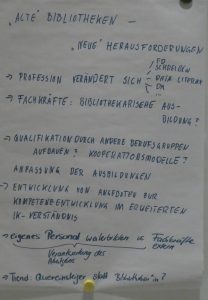 "ALTE" BIBLIOTHEKEN –
"NEUE" HERAUSFORDERUNGEN
→ PROFESSION VERÄNDERT SICH
FD
SCHREIBEN
DATA LITERACY
DM
...
→ FACHKRÄFTE: BIBLIOTHEKARISCHE AUS-
BILDUNG?
→ QUALIFIKATION DURCH ANDERE BERUFSGRUPPEN
AUFBAUEN? KOOPERATIONSMODELLE?
ANPASSUNG DER AUSBILDUNGEN
→ ENTWICKLUNG VON ANGEBOTEN ZUR
KOMPETENZENTWICKLUNG IM ERWEITERTEN
IK-VERSTÄNDNIS
→ eigenes Personal weiterbilden Fachkräfte
extern
Verantwortung des
→ Trend: Quereinsteiger statt Bibliothekar*in?